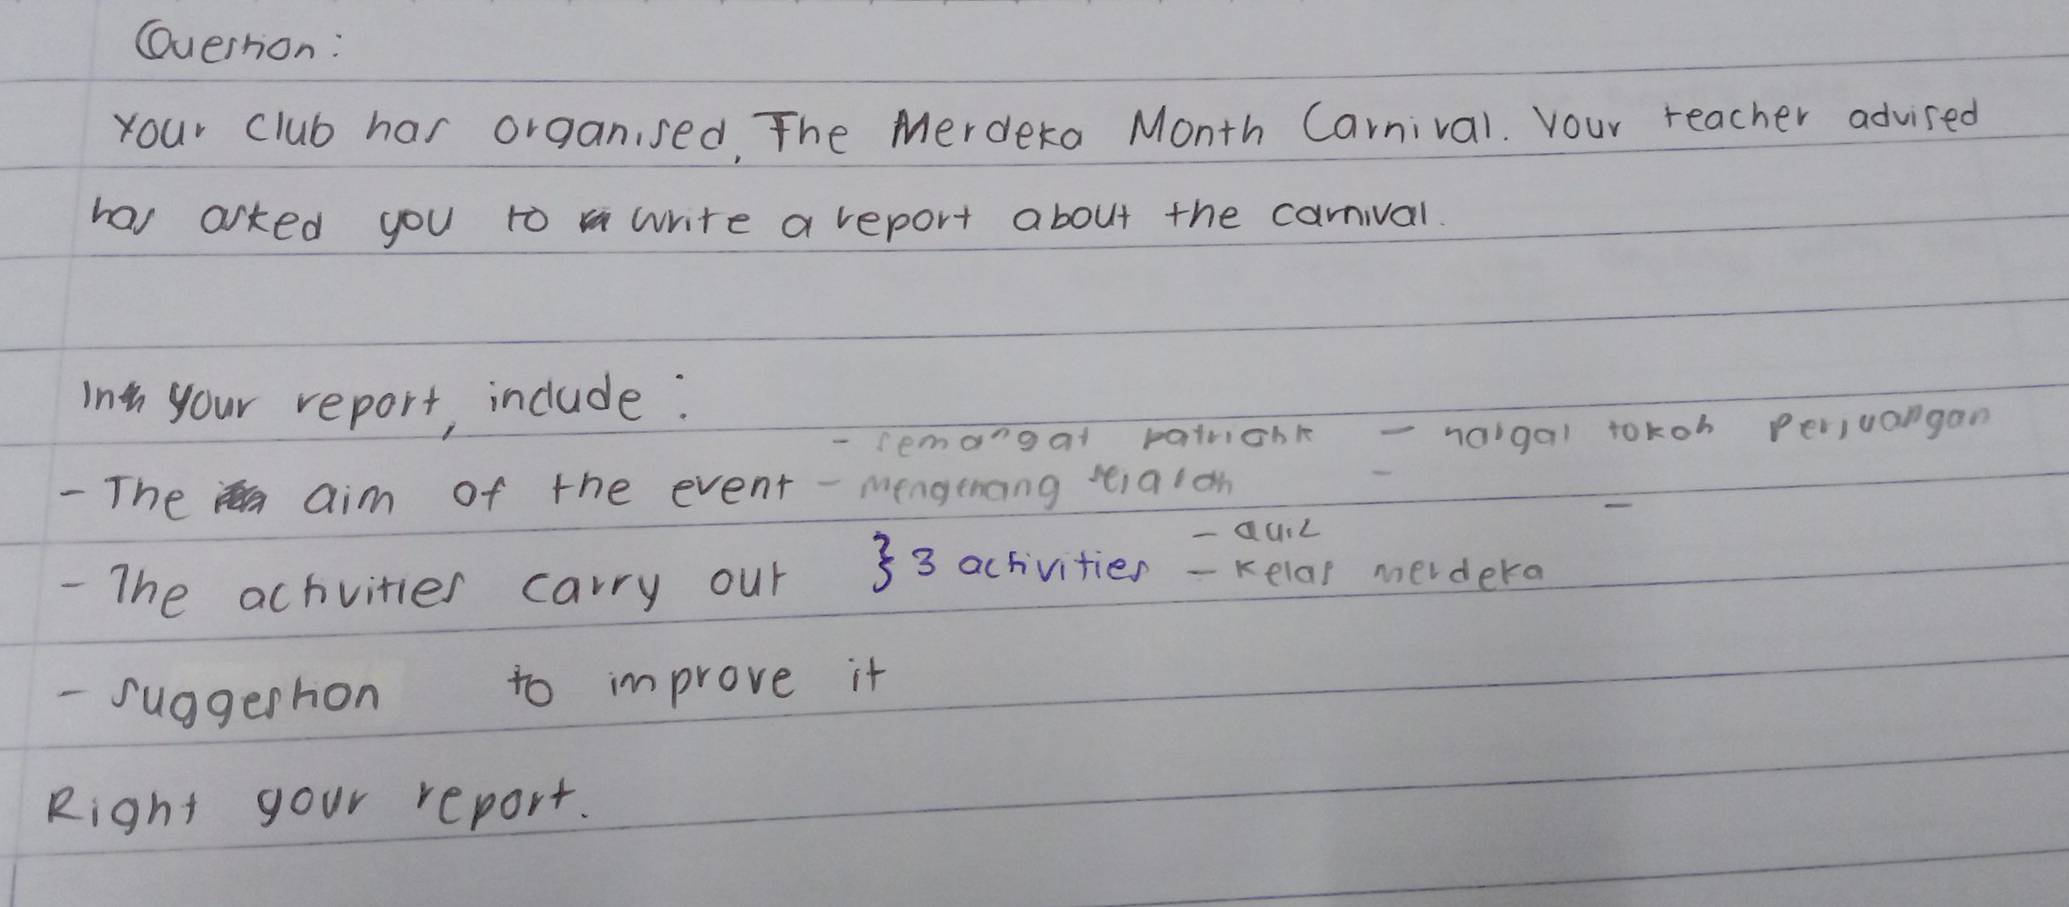 Question:
Your club has organised, The Merdeka Month Carnival. Your teacher advised
has asked you to write a report about the carnival.
In your report, include:
- semangat patriotik - hargai tokoh perjuangan
- The aim of the event - mengenang sejarah -
- quiz
- The activities carry out } 3 activities - kelas merdeka
- suggestion to improve it
Right your report.